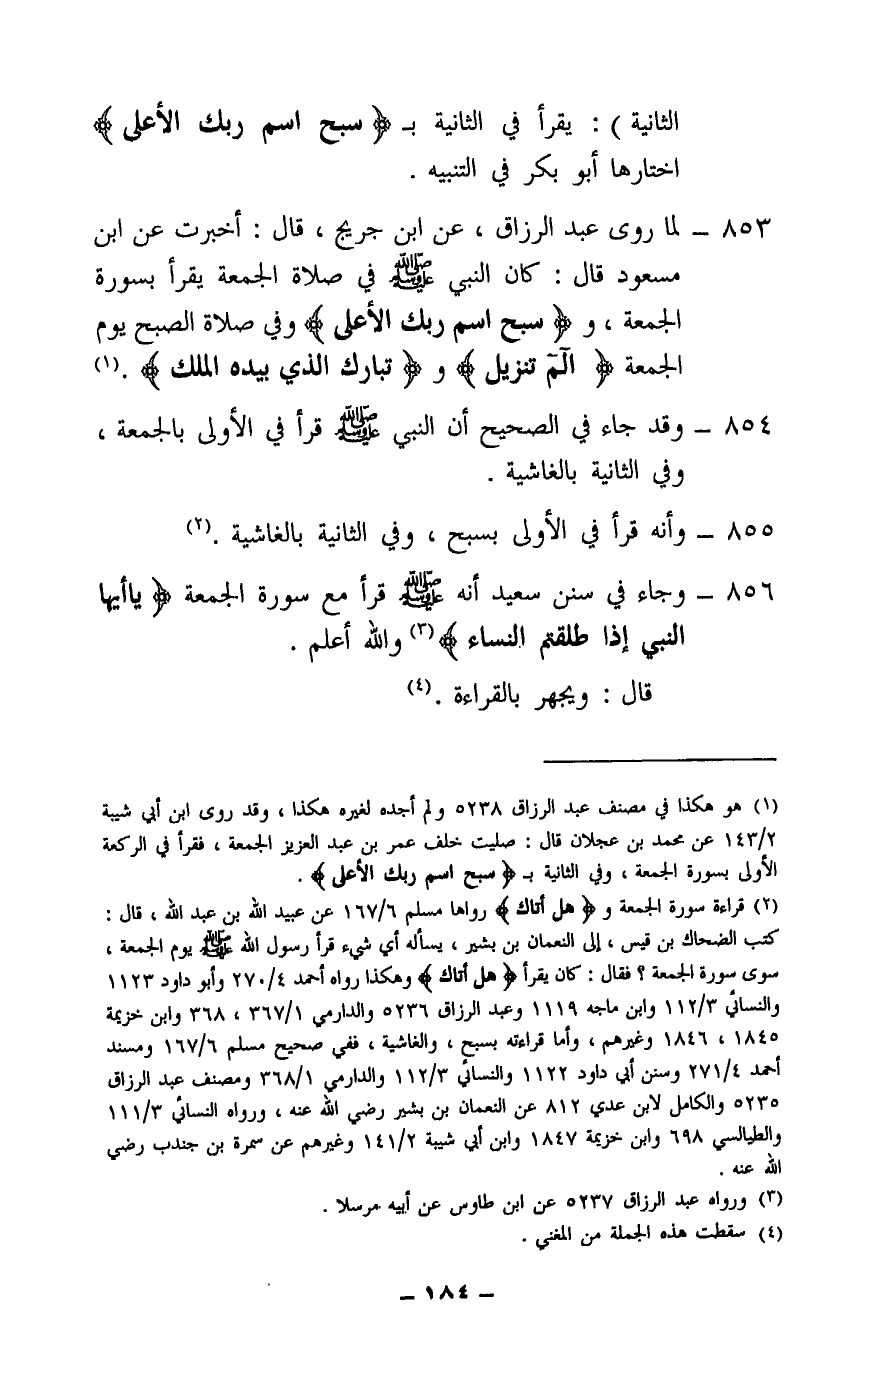 الثانية ) : يقرأ في الثانية بـ ﴿ سبح اسم ربك الأعلى ﴾
اختارها أبو بكر في التنبيه .
٨٥٣ ــ لما روى عبد الرزاق ، عن ابن جريج ، قال : أخبرت عن ابن
مسعود قال : كان النبي ﷺ في صلاة الجمعة يقرأ بسورة
الجمعة ، و ﴿ سبح اسم ربك الأعلى ﴾ وفي صلاة الصبح يوم
الجمعة ﴿ الٓمٓ تنزيل ﴾ و ﴿ تبارك الذي بيده الملك ﴾ .(١)
٨٥٤ ــ وقد جاء في الصحيح أن النبي ﷺ قرأ في الأولى بالجمعة ،
وفي الثانية بالغاشية .
٨٥٥ ــ وأنه قرأ في الأولى بسبح ، وفي الثانية بالغاشية .(٢)
٨٥٦ ــ وجاء في سنن سعيد أنه ﷺ قرأ مع سورة الجمعة ﴿ ياأيها
النبي إذا طلقتم النساء ﴾(٣) والله أعلم .
قال : ويجهر بالقراءة .(٤)
(١) هو هكذا في مصنف عبد الرزاق ٥٢٣٨ ولم أجده لغيره هكذا ، وقد روى ابن أبي شيبة
١٤٣/٢ عن محمد بن عجلان قال : صليت خلف عمر بن عبد العزيز الجمعة ، فقرأ في الركعة
الأولى بسورة الجمعة ، وفي الثانية بـ ﴿ سبح اسم ربك الأعلى ﴾ .
(٢) قراءة سورة الجمعة و ﴿ هل أتاك ﴾ رواها مسلم ١٦٧/٦ عن عبيد الله بن عبد الله ، قال :
كتب الضحاك بن قيس ، إلى النعمان بن بشير ، يسأله أي شيء قرأ رسول الله ﷺ يوم الجمعة ،
سوى سورة الجمعة ؟ فقال : كان يقرأ ﴿ هل أتاك ﴾ وهكذا رواه أحمد ٢٧٠/٤ وأبو داود ١١٢٣
والنسائي ١١٢/٣ وابن ماجه ١١١٩ وعبد الرزاق ٥٢٣٦ والدارمي ٣٦٧/١ ، ٣٦٨ وابن خزيمة
١٨٤٥ ، ١٨٤٦ وغيرهم ، وأما قراءته بسبح ، والغاشية ، ففي صحيح مسلم ١٦٧/٦ ومسند
أحمد ٢٧١/٤ وسنن أبي داود ١١٢٢ والنسائي ١١٢/٣ والدارمي ٣٦٨/١ ومصنف عبد الرزاق
٥٢٣٥ والكامل لابن عدي ٨١٢ عن النعمان بن بشير رضي الله عنه ، ورواه النسائي ١١١/٣
والطيالسي ٦٩٨ وابن خزيمة ١٨٤٧ وابن أبي شيبة ١٤١/٢ وغيرهم عن سمرة بن جندب رضي
الله عنه .
(٣) ورواه عبد الرزاق ٥٢٣٧ عن ابن طاوس عن أبيه مرسلا .
(٤) سقطت هذه الجملة من المغني .
ــ ١٨٤ ــ